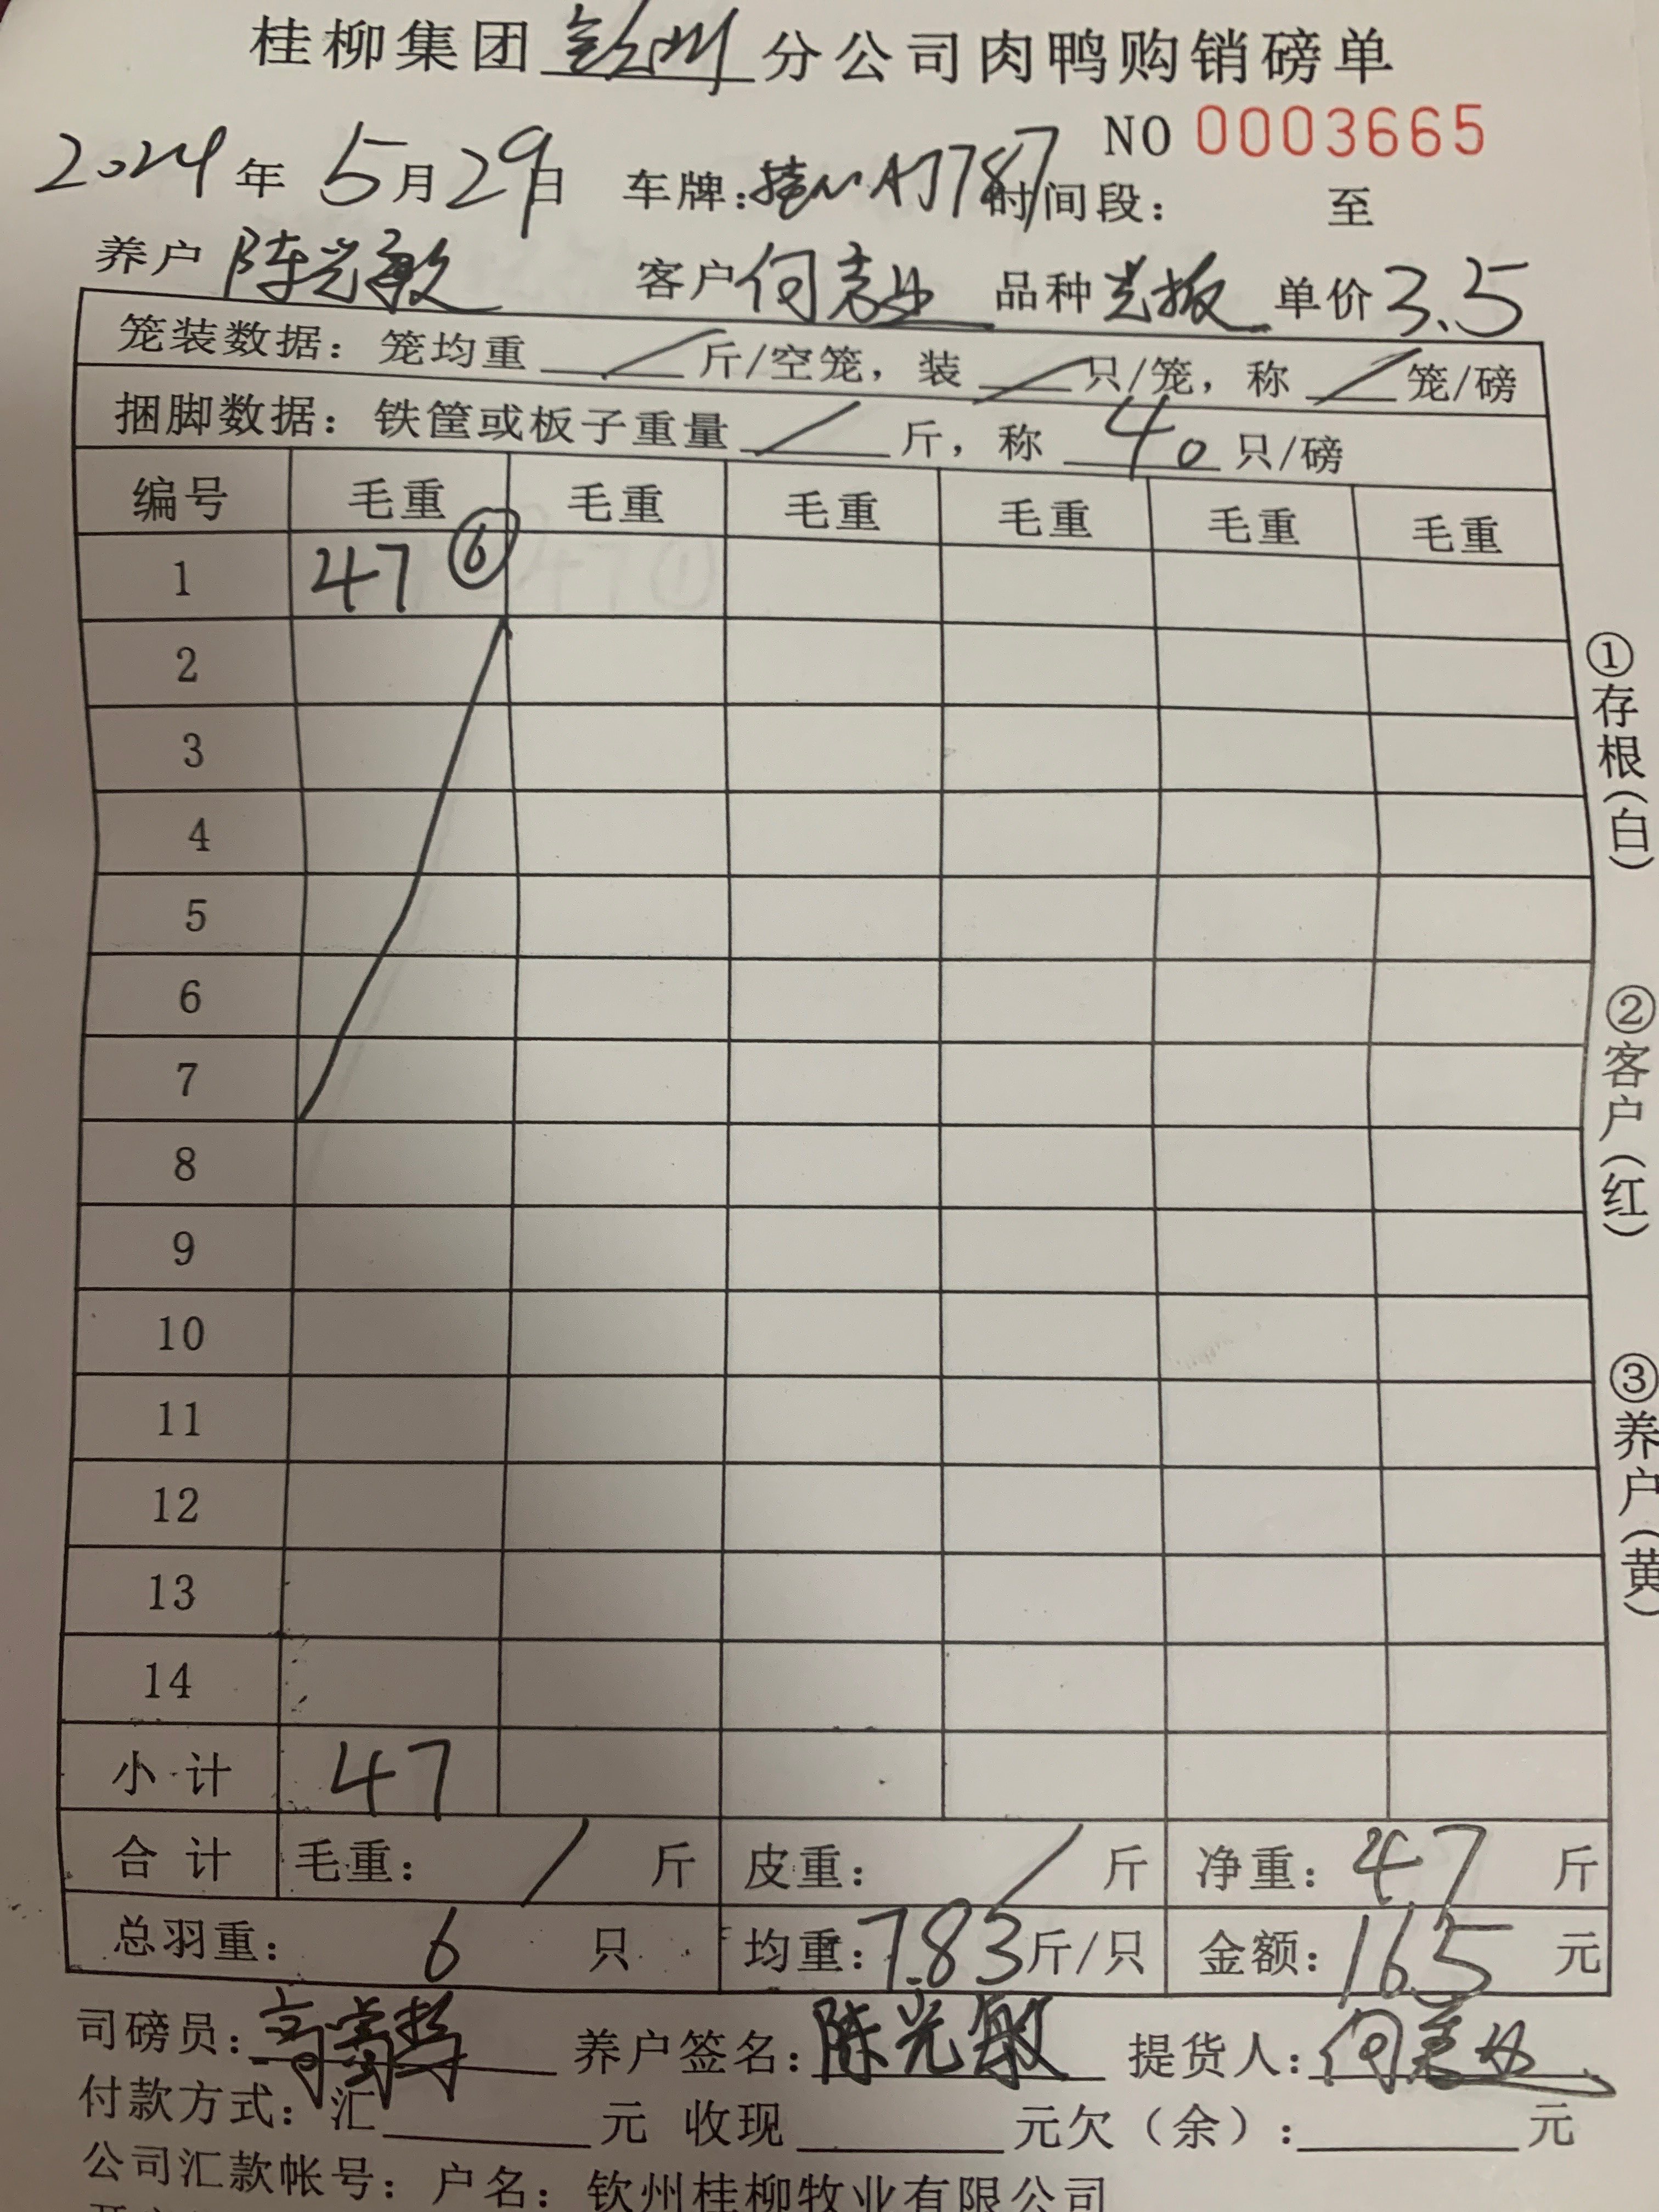 桂柳集团 钦州 分公司肉鸭购销磅单
NO 0003665
2024 年 5 月 29 日 车牌: 787 时间段: 至
养户 陈光敏 客户 何 品种 光板 单价 3.5
笼装数据: 笼均重 / 斤/空笼, 装 / 只/笼, 称 / 笼/磅
捆脚数据: 铁筐或板子重量 / 斤, 称 40 只/磅
编号 毛重 毛重 毛重 毛重 毛重 毛重
1 47 ⑥
2
3
4
5
6
7
8
9
10
11
12
13
14
小计 47
合计 毛重: / 斤 皮重: / 斤 净重: 47 斤
总羽重: 6 只 均重: 7.83 斤/只 金额: 165 元
司磅员: 养户签名: 陈光敏 提货人: 何
付款方式: 汇 元 收现 元欠(余): 元
公司汇款帐号: 户名: 钦州桂柳牧业有限公司
①存根(白)
②客户(红)
③养户(黄)